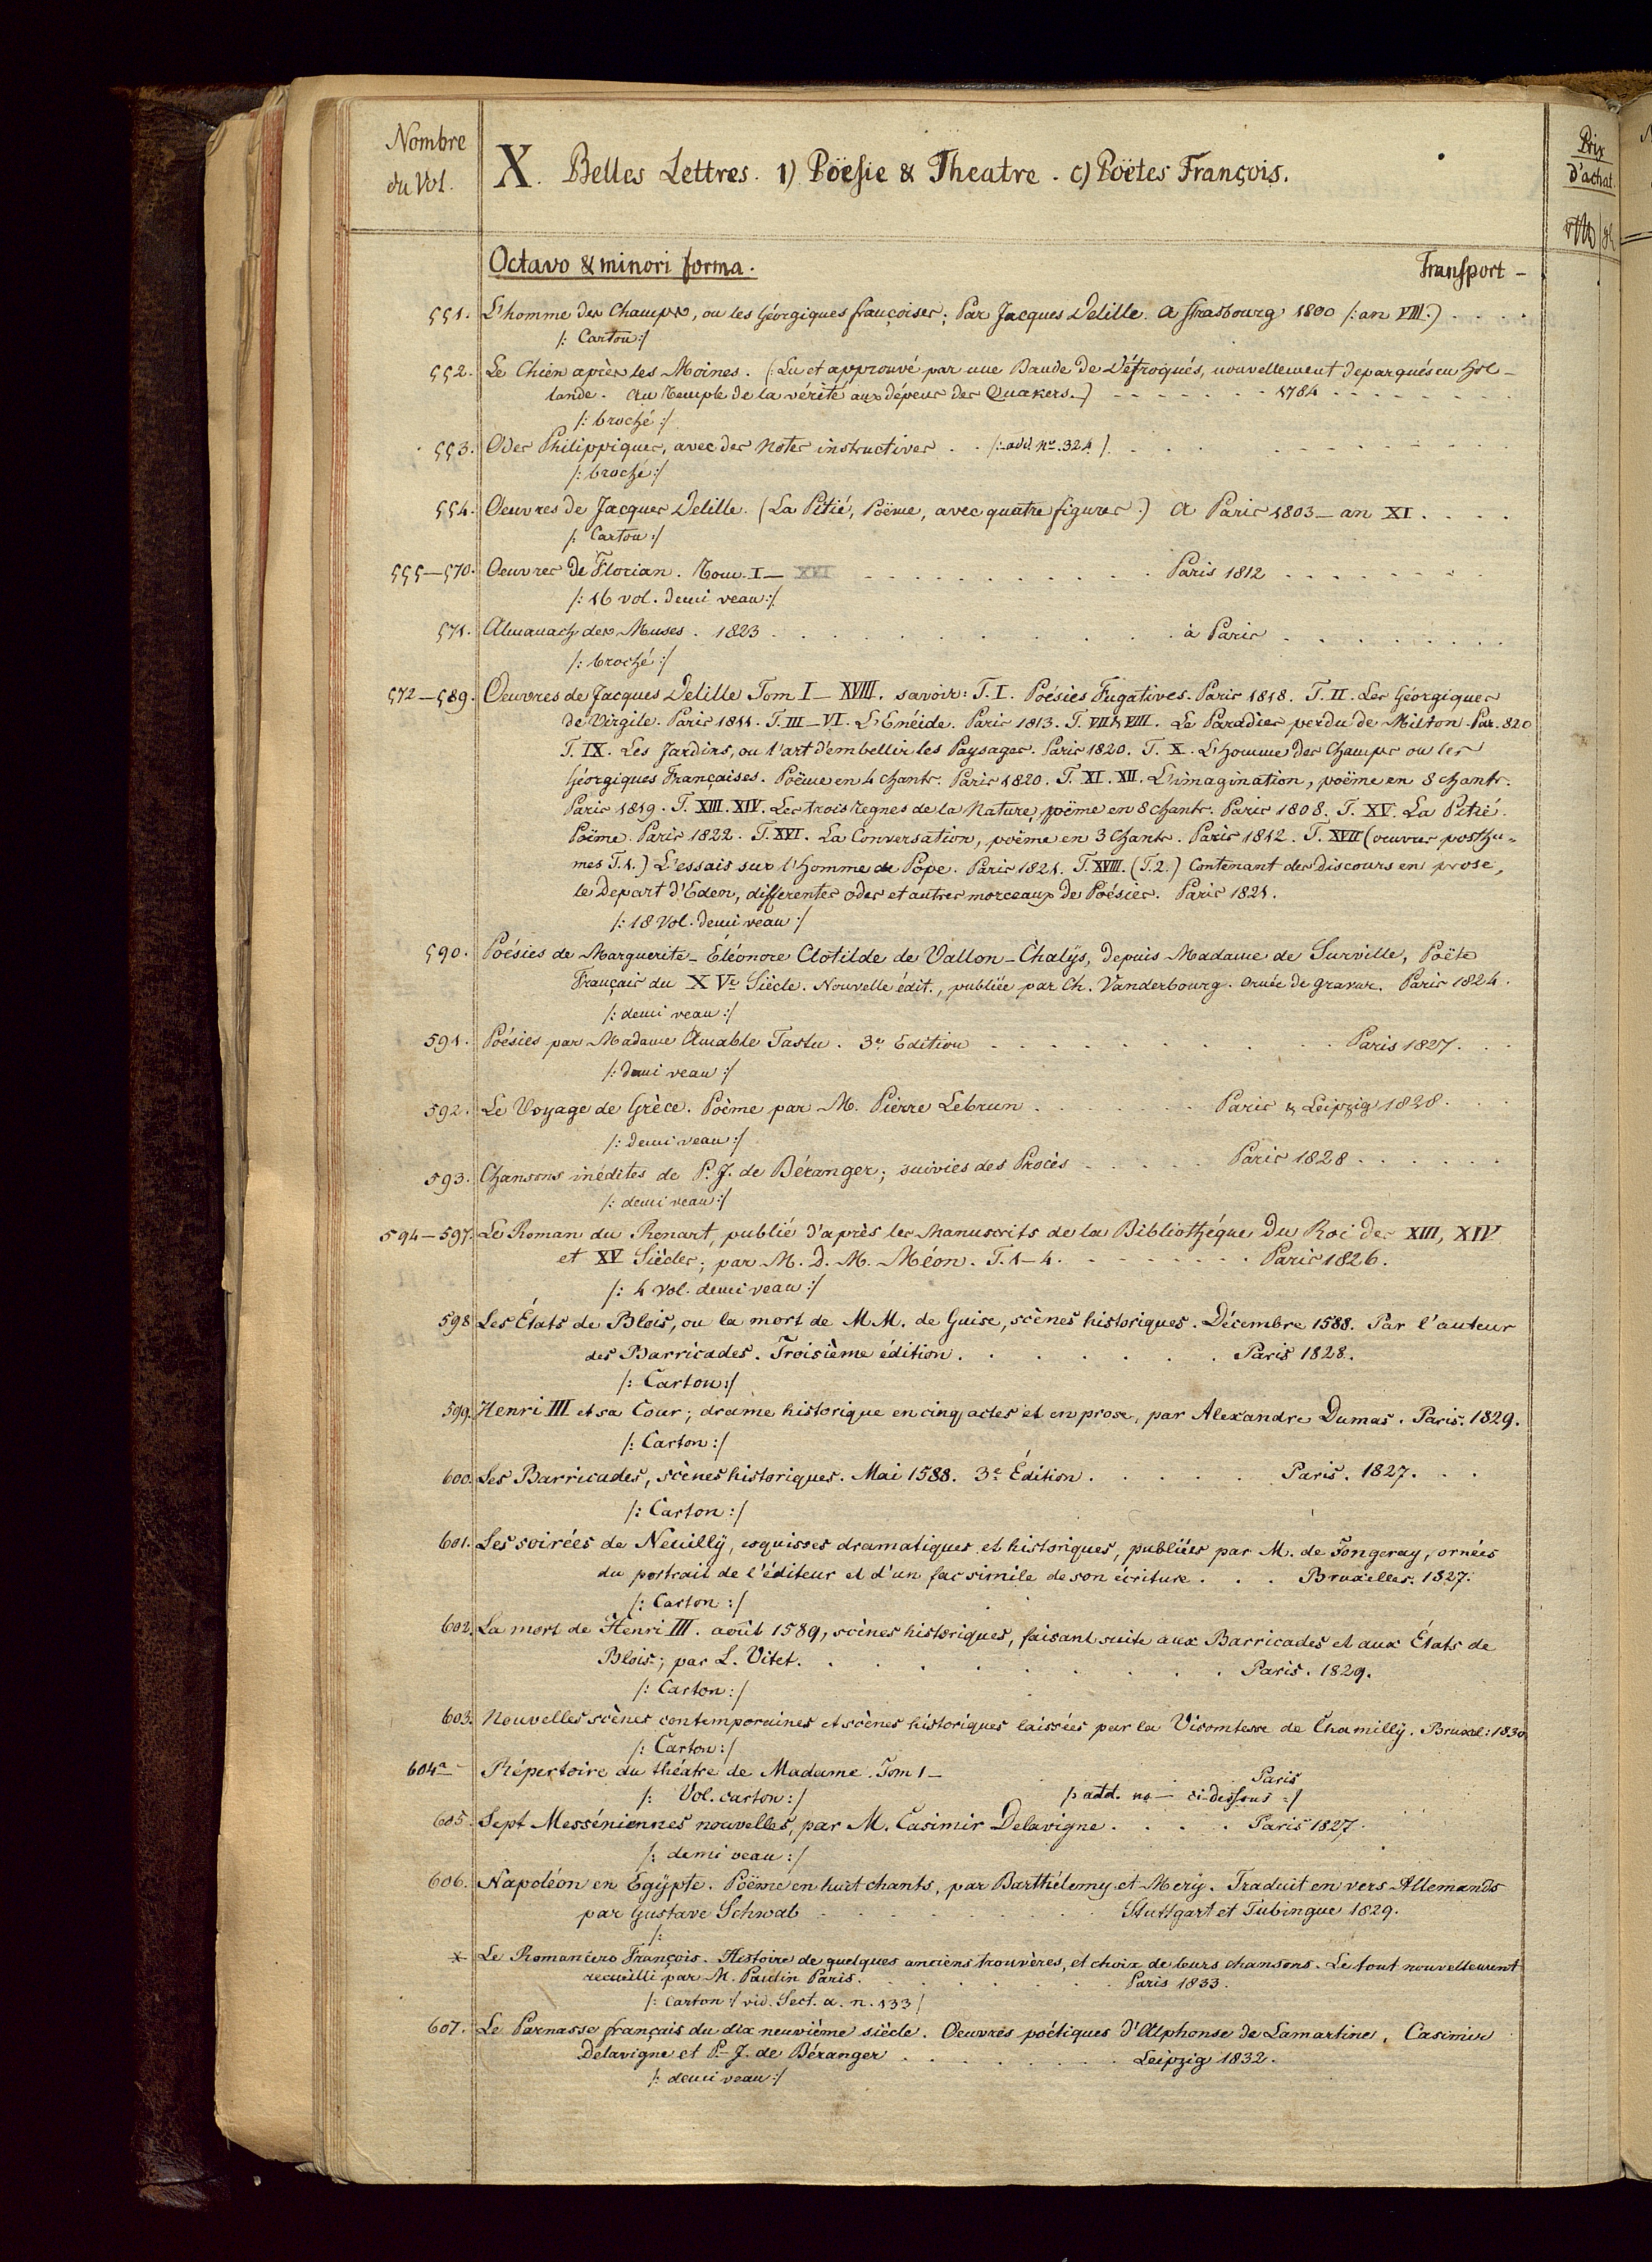 Nombre
du Vol.
X. Belles Lettres. 1) Poësie & Theatre. c) Poëtes François.
Prix
d'achat.
Octavo & minori forma.
Transport -
551. L'homme des Champs, ou les Géorgiques françoises; Par Jacques Delille. a Strasbourg 1800 /: an VIII.)
/: Carton :/
552. Le Chien après les Moines. (Lu et approuvé par une Bande de Défroqués, nouvellement deparqués en Hol-
lande. Au Temple de la vérité aux dépens des Quakers.) 1784
/: broché :/
553. Odes Philippiques, avec des Notes instructives . . /: add. No. 324 /.
/: broché :/
554. Oeuvres de Jacques Delille. (La Pitié, Poëme, avec quatre figures.) A Paris 1803 - an XI
/: Carton :/
555-570. Oeuvres de Florian. Tom. I - XVI Paris 1812
/: 16 vol. demi veau :/
571. Almanach des Muses. 1823 à Paris
/: broché :/
572-589. Oeuvres de Jacques Delille Tom I - XVIII. savoir: T. I. Poésies Fugatives. Paris 1818. T. II. Les Géorgiques
de Virgile. Paris 1811. T. III - VI. L'Enéide. Paris 1813. T. VII & VIII. Le Paradies perdu de Milton. Par. 820
T. IX. Les Jardins, ou l'art d'embellir les Paysages. Paris 1820. T. X. L'homme des Champs ou les
Géorgiques Françaises. Poëme en 4 chants. Paris 1820. T. XI. XII. L'imagination, poëme en 8 chants.
Paris 1819. T. XIII. XIV. Les trois regnes de la Nature, poëme en 8 chants. Paris 1808. T. XV. La Pitié.
Poëme. Paris 1822. T. XVI. La Conversation, poëme en 3 Chants. Paris 1812. T. XVII (oeuvres posthu-
mes T. 1.) L'essais sur l'homme de Pope. Paris 1821. T. XVIII. (T. 2.) Contenant des discours en prose,
le Depart d'Eden, differentes odes et autres morceaux de Poésies. Paris 1821.
/: 18 Vol. demi veau :/
590. Poésies de Marguerite-Éléonore Clotilde de Vallon-Chalys, depuis Madame de Surville, Poëte
Français du XVe Siècle. Nouvelle édit., publiée par Ch. Vanderbourg. ornée de gravur. Paris 1824.
/: demi veau :/
591. Poésies par Madame Amable Tastu. 3e Edition Paris 1827.
/: demi veau :/
592. Le Voyage de Grèce. Poème par M. Pierre Lebrun Paris & Leipzig 1828.
/: demi veau :/
593. Chansons inédites de P. J. de Béranger; suivies des Procès Paris 1828
/: demi veau :/
594-597. Le Roman du Renart, publié d'après les Manuscrits de la Bibliothéque du Roi des XIII, XIV
et XV Siècles; par M. D. M. Méon. T. 1-4. Paris 1826.
/: 4 vol. demi veau :/
598 Les États de Blois, ou la mort de MM. de Guise, scènes historiques. Décembre 1588. Par l'auteur
des Barricades. Troisième édition. Paris 1828.
/: Carton :/
599. Henri III et sa Cour; drame historique en cinq actes et en prose, par Alexandre Dumas. Paris. 1829.
/: Carton :/
600. Les Barricades, scènes historiques. Mai 1588. 3e Édition. Paris. 1827.
/: Carton :/
601. Les soirées de Neuilly, esquisses dramatiques et historiques, publiées par M. de Fongeray, ornées
du portrait de l'éditeur et d'un fac simile de son écriture Bruxelles. 1827.
/: Carton :/
602. La mort de Henri III. août 1589, scènes historiques, faisant suite aux Barricades et aux États de
Blois; par L. Vitet. Paris. 1829.
/: Carton :/
603. Nouvelles scènes contemporaines et scènes historiques laissées par la Vicomtesse de Chamilly. Bruxel: 1830
/: Carton :/
604a Répertoire du théatre de Madame. Tom 1 - Paris
/: Vol. carton :/ /: add. no - ci-dessous :/
605. Sept Messéniennes nouvelles, par M. Casimir Delavigne. Paris 1827.
/: demi veau :/
606. Napoléon en Égypte. Poëme en huit chants, par Barthélemy et Mery. Traduit en vers Allemands
par Gustave Schwab Stuttgart et Tubingue 1829.
/:
* Le Romancero François. Histoire de quelques anciens trouvères, et choix de leurs chansons. Le tout nouvellement
recueilli par M. Paulin Paris. Paris 1833.
/: Carton :/ vid. Sect. a. n. 133 /
607. Le Parnasse français du dix neuvième siècle. Oeuvres poétiques d'Alphonse de Lamartine, Casimir
Delavigne et P.-J. de Béranger Leipzig 1832.
/: demi veau :/